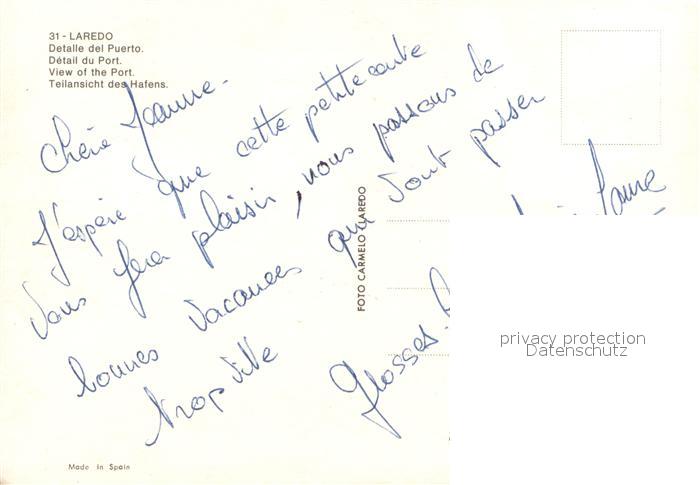 31 - LAREDO
Detalle del Puerto.
Détail du Port.
View of the Port.
Teilansicht des Hafens.
Chère Jeanne.
J'espère que cette petite carte
vous fera plaisir, nous passons de
bonnes vacances qui vont passer
trop vite
Grosses
FOTO CARMELO LAREDO
privacy protection
Datenschutz
Made in Spain